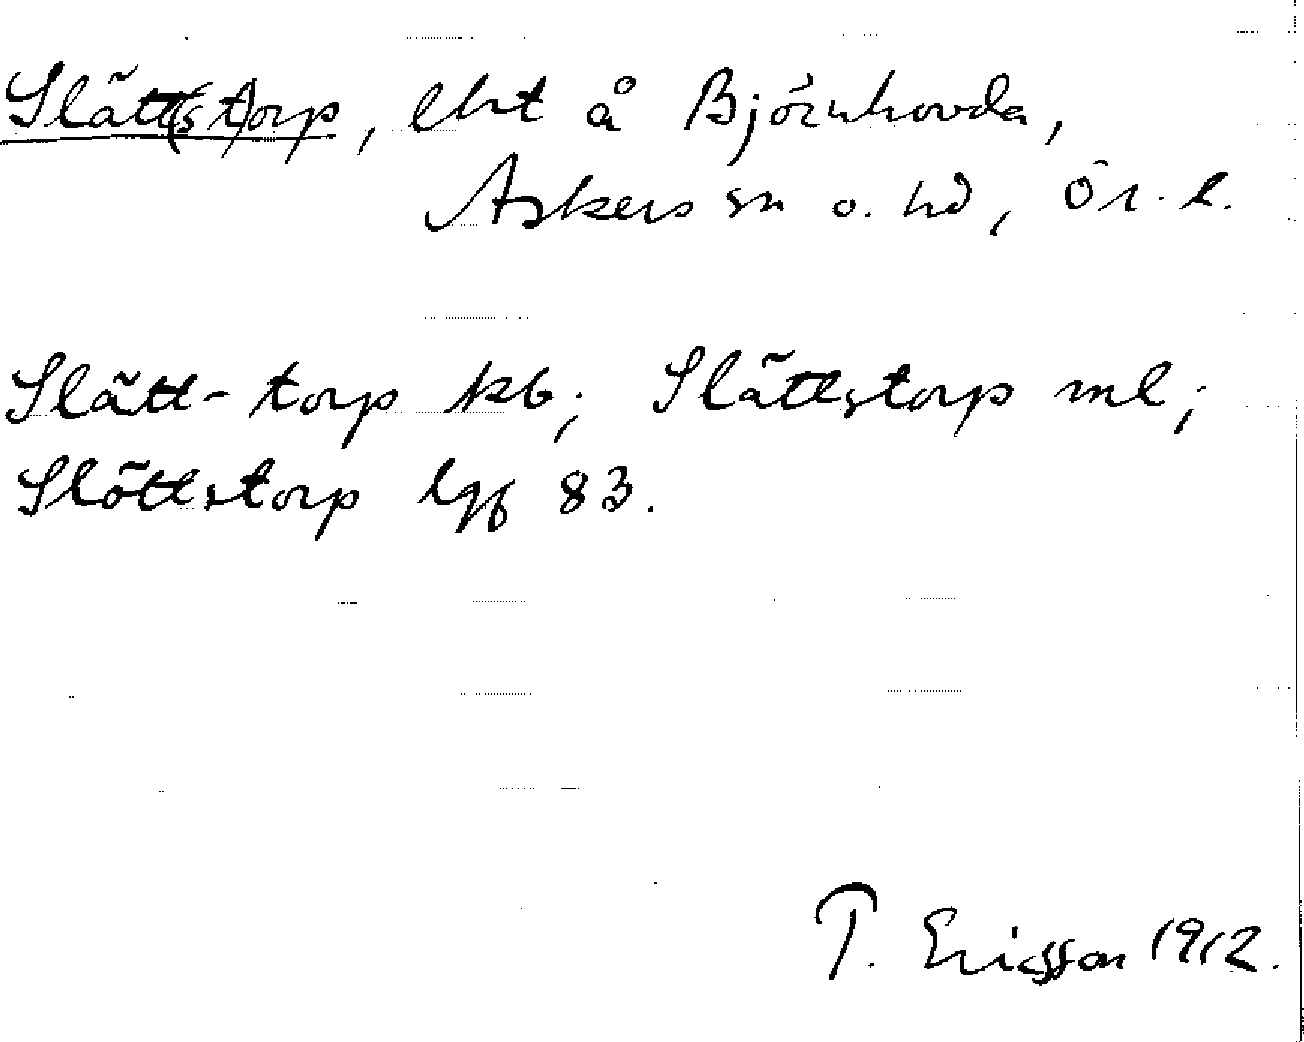 Slätt(s t)orp, lht å Björnhovda,
Askers sn o. hd, Ör. l.
Slätt-torp kb; Slättstorp ml;
Slöttstorp lgf 83.
T. Ericsson 1912.